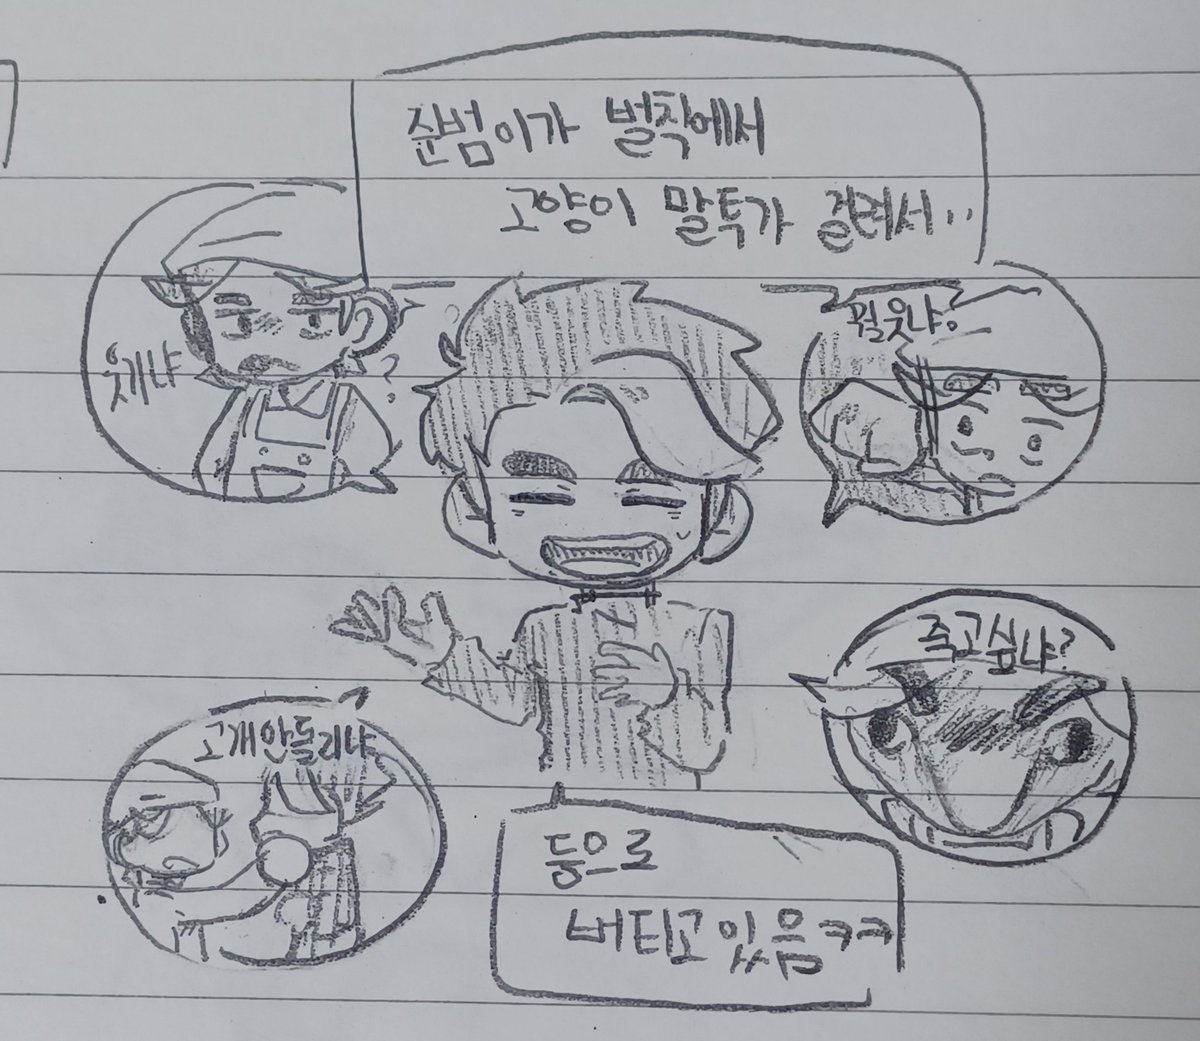 준범이가 벌칙에서
고양이 말투가 걸려서..
웃기냐
?
뭘 웃냐?
죽고싶냐?
고개안돌리냐
등으로
버티고있음ㅋㅋ